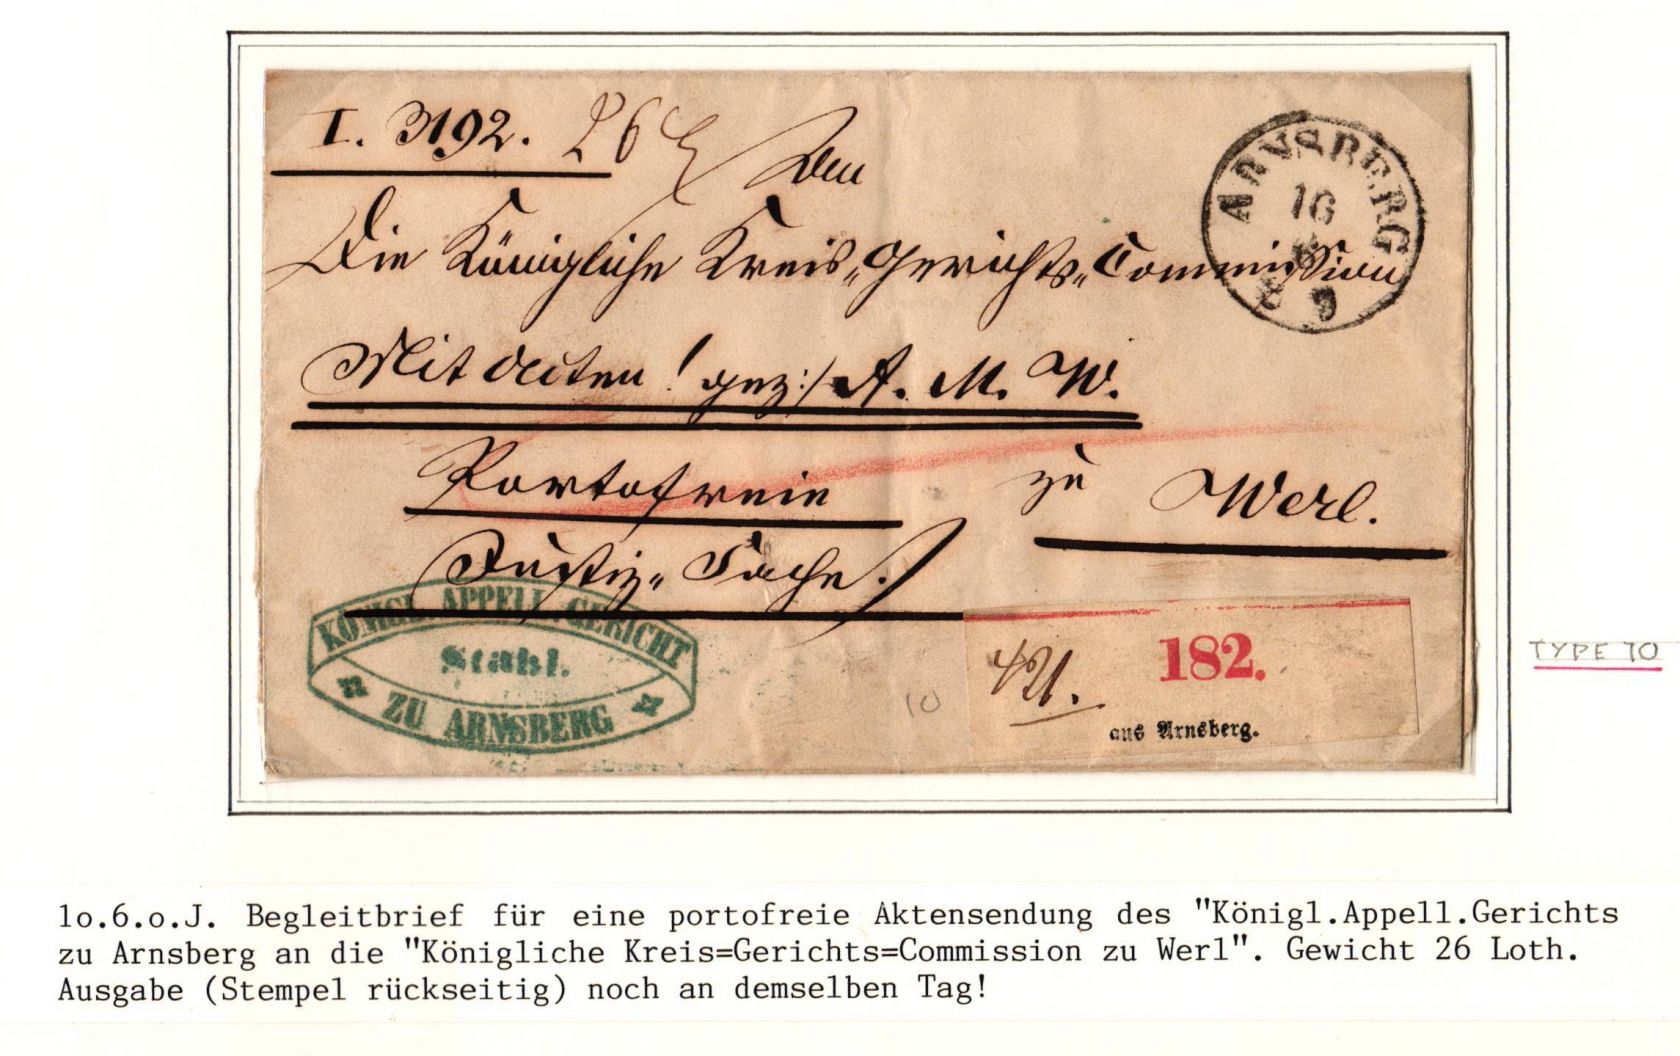 I. 3192. 26
An
Die Königliche Kreis„Gerichts„Commission
Mit Acten! gez:/ A. M. W.
Portofreie zu Werl.
Justiz„Sache.
ARNSBERG
10
6
8 9
KÖNIGL. APPELL. GERICHT
ZU ARNSBERG
182.
aus Arnsberg.
10
TYPE 10
1o.6.o.J. Begleitbrief für eine portofreie Aktensendung des "Königl.Appell.Gerichts
zu Arnsberg an die "Königliche Kreis=Gerichts=Commission zu Werl". Gewicht 26 Loth.
Ausgabe (Stempel rückseitig) noch an demselben Tag!